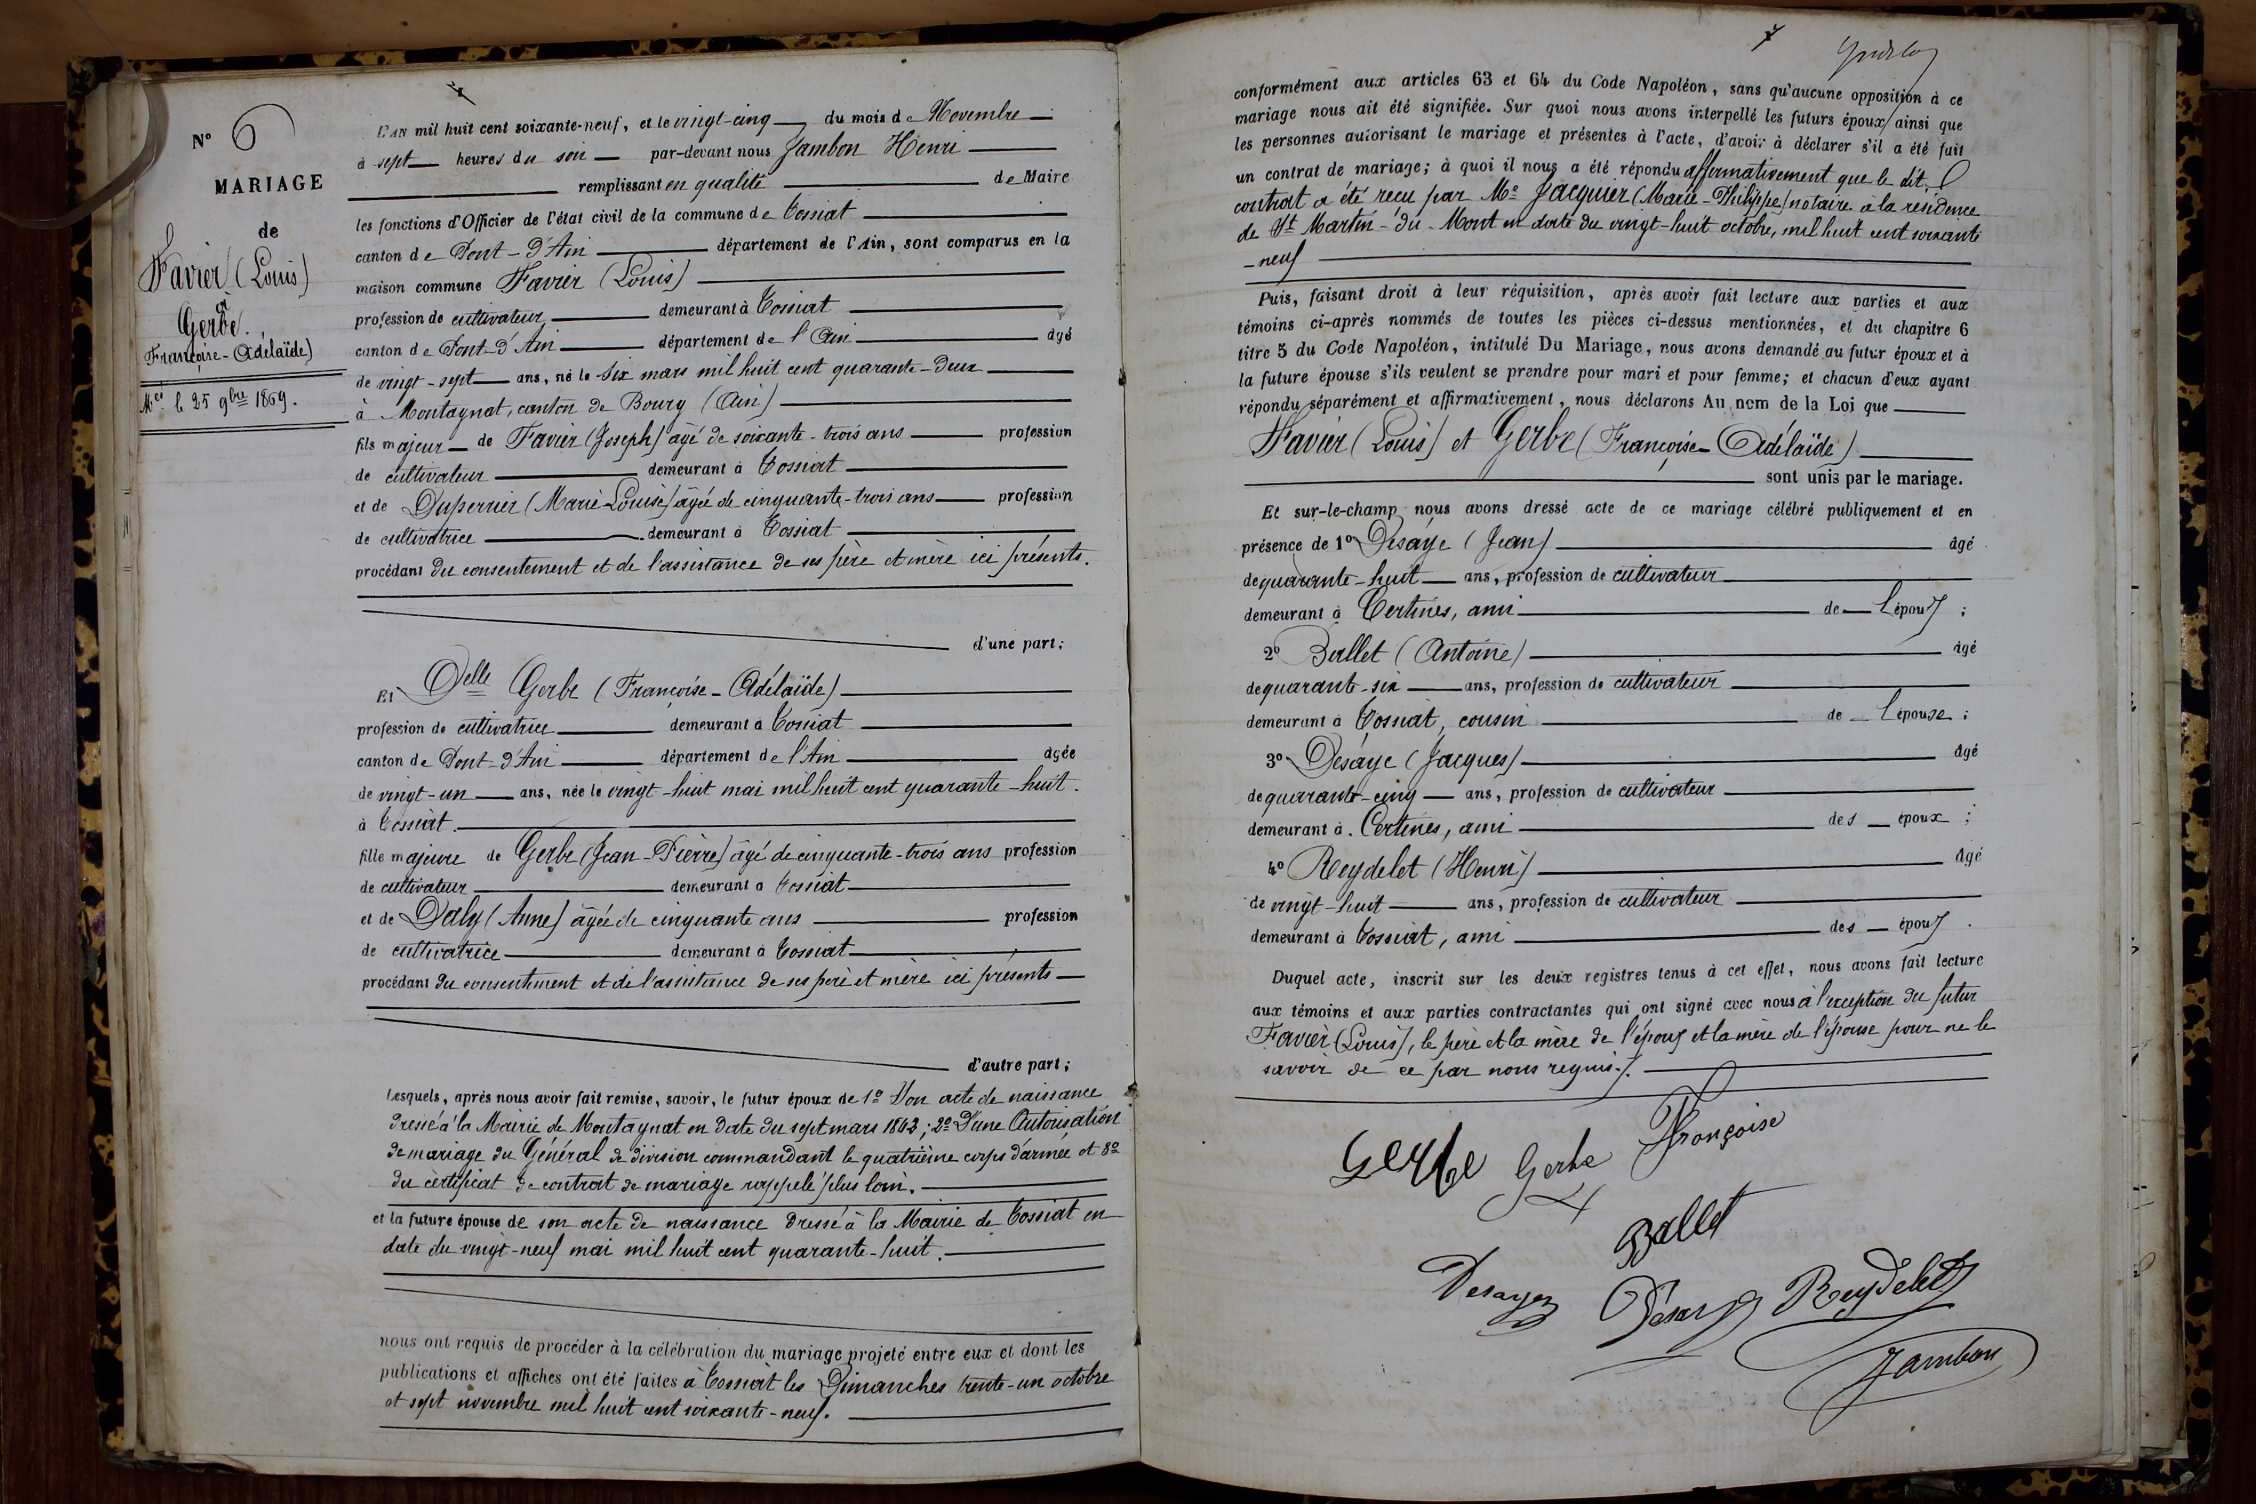 N° 6
MARIAGE
de
Favier (Louis)
et
Gerbe
Françoise-Adélaïde)
le 25 9bre 1869.
L'AN mil huit cent soixante-neuf, et le vingt-cinq du mois de Novembre
à sept heures du soir par-devant nous Jambon Henri
remplissant en qualité de Maire
les fonctions d'Officier de l'état civil de la commune de Tossiat
canton de Pont-d'Ain département de l'Ain, sont comparus en la
maison commune Favier (Louis)
profession de cultivateur demeurant à Tossiat
canton de Pont-d'Ain département de l'Ain âgé
de vingt-sept ans, né le six mars mil huit cent quarante-deux
à Montagnat, canton de Bourg (Ain)
fils majeur de Favier (Joseph) âgé de soixante-trois ans profession
de cultivateur demeurant à Tossiat
et de Dupernier (Marie-Louise) âgée de cinquante-trois ans profession
de cultivatrice demeurant à Tossiat
procédant du consentement et de l'assistance de ses père et mère ici présents.
d'une part;
Et Delle Gerbe (Françoise-Adélaïde)
profession de cultivatrice demeurant à Tossiat
canton de Pont-d'Ain département de l'Ain âgée
de vingt-un ans, née le vingt-huit mai mil huit cent quarante-huit.
à Tossiat.
fille majeure de Gerbe (Jean-Pierre) âgé de cinquante-trois ans profession
de cultivateur demeurant à Tossiat
et de Daly (Anne) âgée de cinquante ans profession
de cultivatrice demeurant à Tossiat
procédant du consentement et de l'assistance de ses père et mère ici présents
d'autre part;
Lesquels, après nous avoir fait remise, savoir, le futur époux de 1° Son acte de naissance
dressé à la Mairie de Montagnat en date du sept mars 1842; 2° D'une Autorisation
de mariage du Général de division commandant le quatrième corps d'armée et 3°
du certificat de contrat de mariage rappelé plus loin.
et la future épouse de son acte de naissance dressé à la Mairie de Tossiat en
date du vingt-neuf mai mil huit cent quarante-huit.
nous ont requis de procéder à la célébration du mariage projeté entre eux et dont les
publications et affiches ont été faites à Tossiat les Dimanches trente-un octobre
et sept novembre mil huit cent soixante-neuf.
7
conformément aux articles 63 et 64 du Code Napoléon, sans qu'aucune opposition à ce
mariage nous ait été signifiée. Sur quoi nous avons interpellé les futurs époux, ainsi que
les personnes autorisant le mariage et présentes à l'acte, d'avoir à déclarer s'il a été fait
un contrat de mariage; à quoi il nous a été répondu affirmativement que le dit
contrat a été reçu par Me Jacquier (Marie-Philippe) notaire à la résidence
de St Martin-du-Mont en date du vingt-huit octobre, mil huit cent soixante
-neuf
Puis, faisant droit à leur réquisition, après avoir fait lecture aux parties et aux
témoins ci-après nommés de toutes les pièces ci-dessus mentionnées, et du chapitre 6
titre 5 du Code Napoléon, intitulé Du Mariage, nous avons demandé au futur époux et à
la future épouse s'ils veulent se prendre pour mari et pour femme; et chacun d'eux ayant
répondu séparément et affirmativement, nous déclarons Au nom de la Loi que
Favier (Louis) et Gerbe (Françoise-Adélaïde)
sont unis par le mariage.
Et sur-le-champ nous avons dressé acte de ce mariage célébré publiquement et en
présence de 1° Désaye (Jean) âgé
de quarante-huit ans, profession de cultivateur
demeurant à Certines, ami de l'époux;
2° Ballet (Antoine) âgé
de quarante-six ans, profession de cultivateur
demeurant à Tossiat, cousin de l'épouse;
3° Désaye (Jacques) âgé
de quarante-cinq ans, profession de cultivateur
demeurant à Certines, ami des époux;
4° Reydelet (Henri) âgé
de vingt-huit ans, profession de cultivateur
demeurant à Tossiat, ami des époux.
Duquel acte, inscrit sur les deux registres tenus à cet effet, nous avons fait lecture
aux témoins et aux parties contractantes qui ont signé avec nous à l'exception du futur
Favier (Louis), le père et la mère de l'époux et la mère de l'épouse pour ne le
savoir de ce par nous requis.
Gerbe Gerbe Françoise
Ballet
Desaye Désaye Reydelet
Jambon